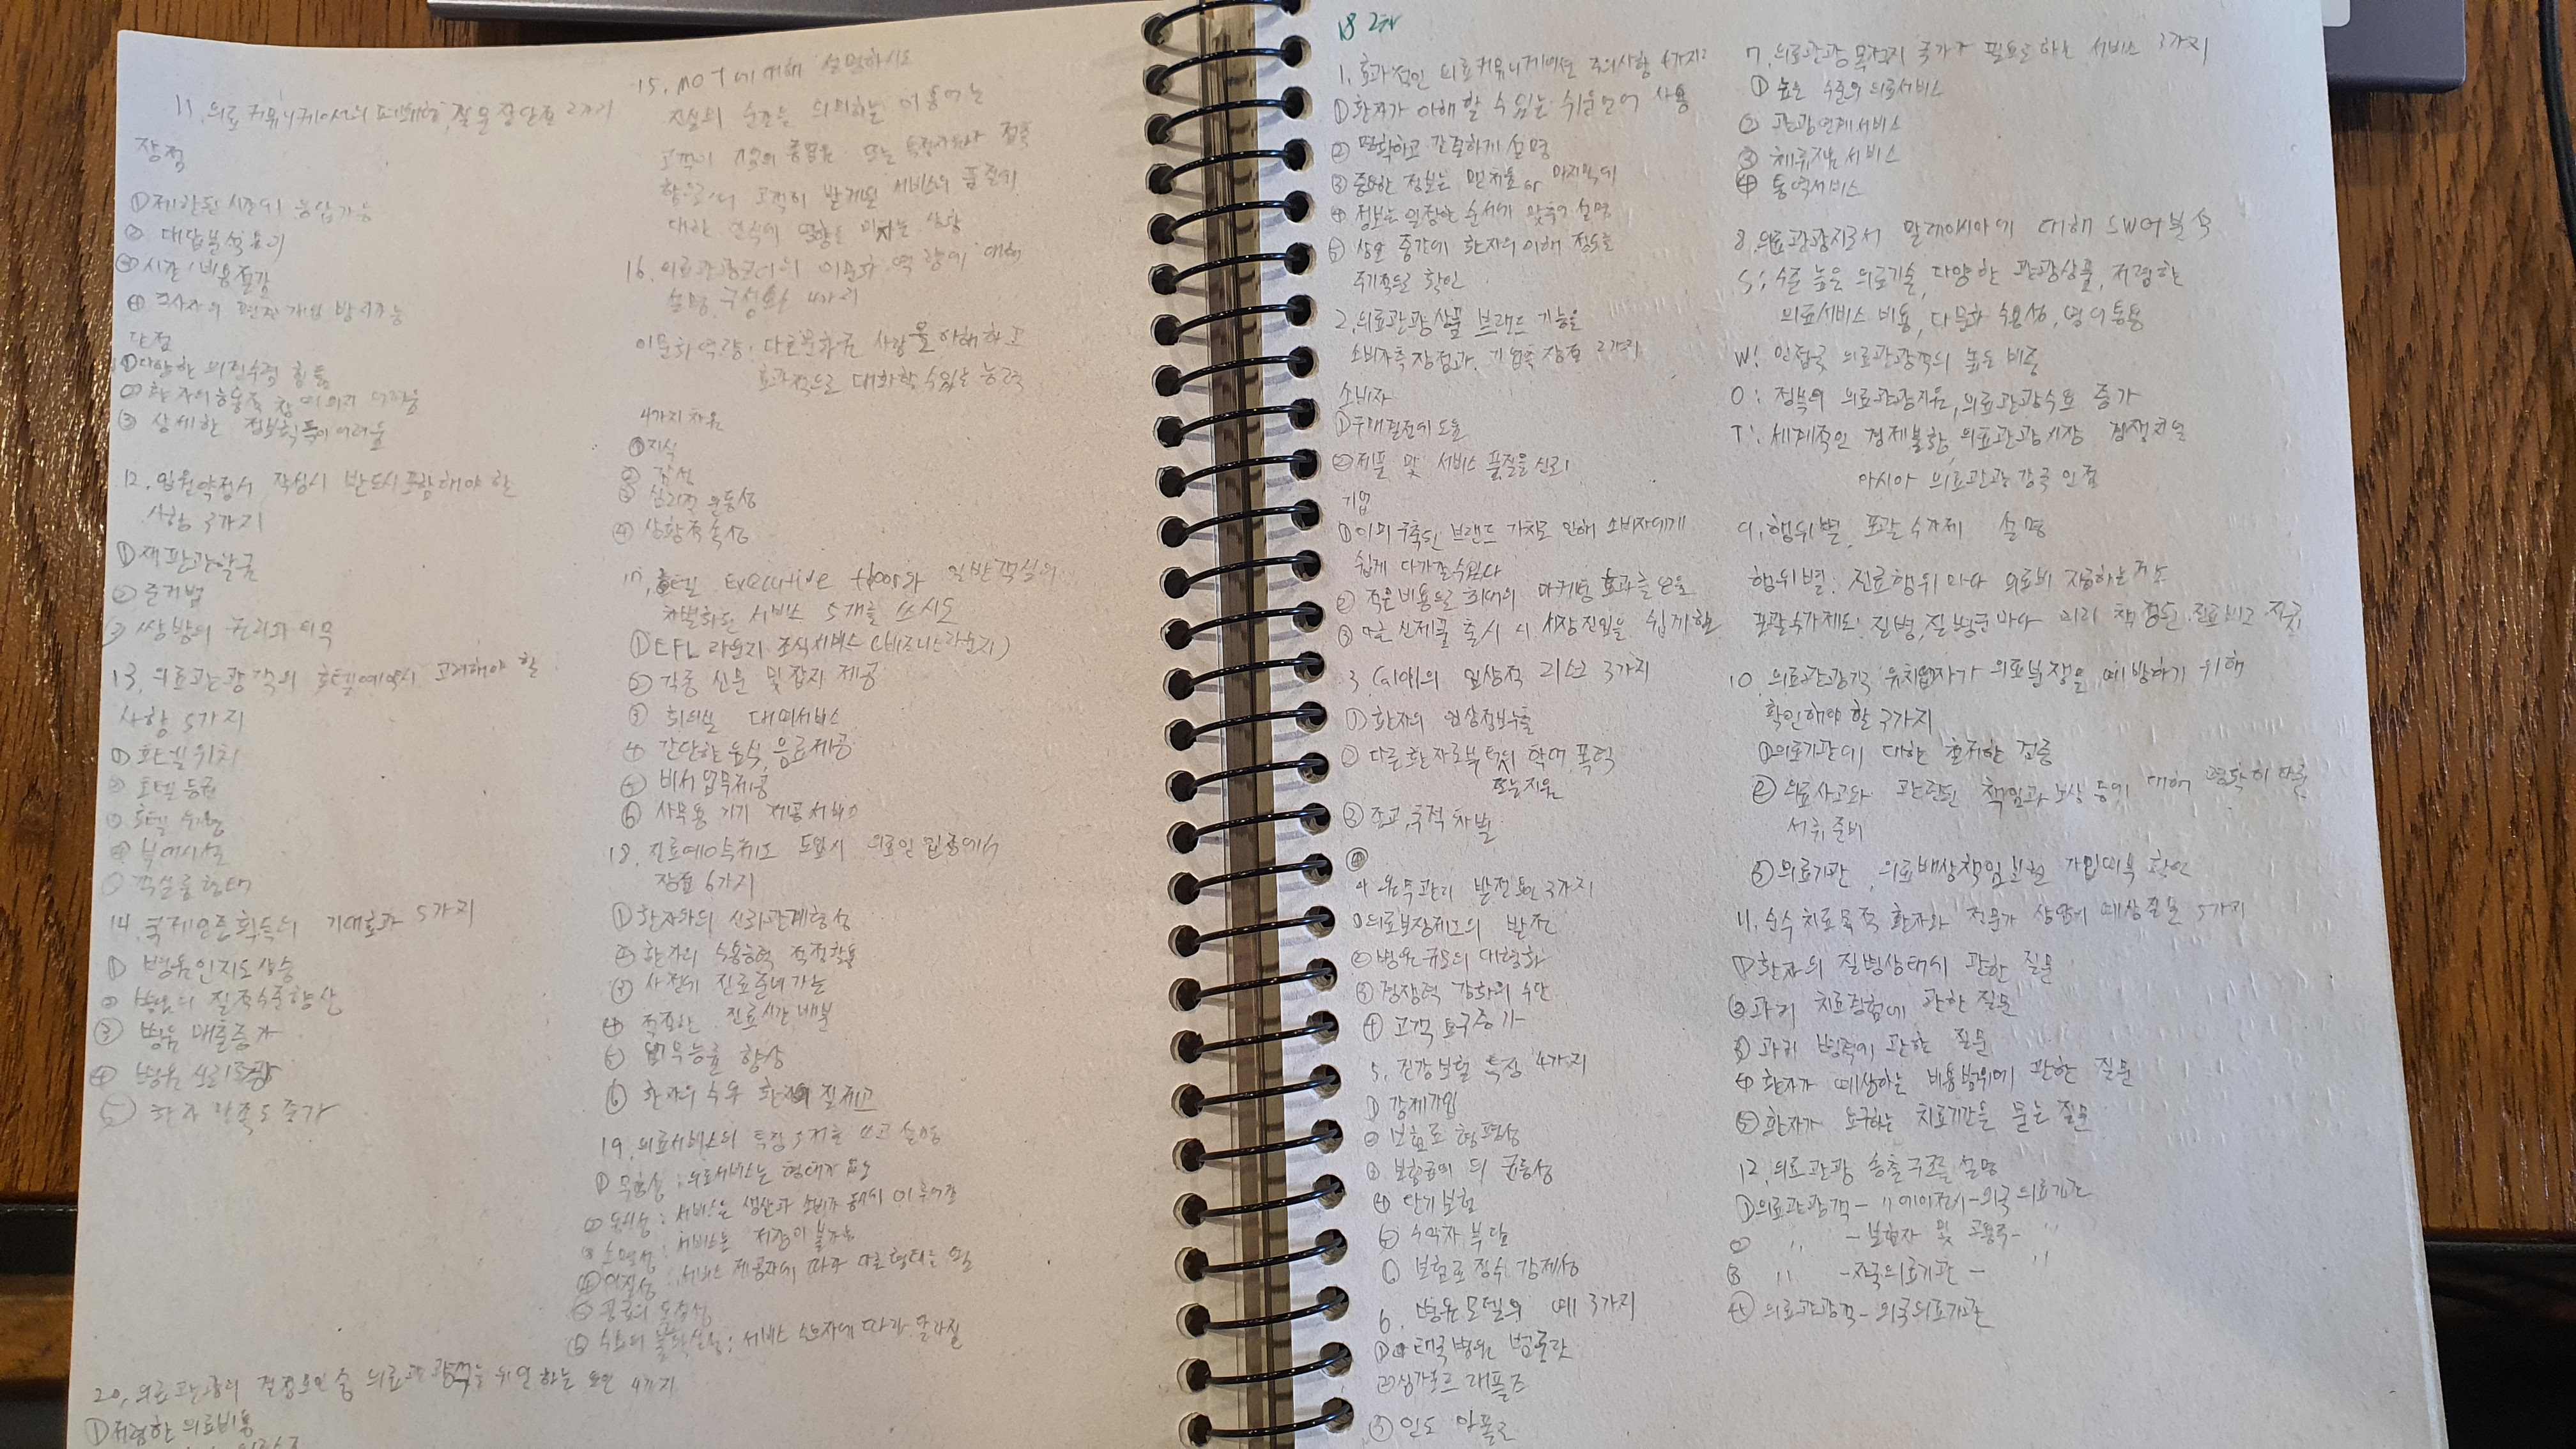 11. 의료커뮤니케이션의 폐쇄형 질문 장단점 2가지
장점
① 제한된 시간에 응답가능
② 대답분석용이
③ 시간, 비용절감
④ 조사자의 편견개입 방지가능
단점
① 다양한 의견수렴 힘듦
② 환자의
③ 상세한 정보획득이 어려움
12. 입원약정서 작성시 반드시 포함해야 한
사항 3가지
① 재판관할권
② 준거법
③ 쌍방의 권리와 의무
13. 의료관광객의 호텔예약시 고려해야 할
사항 5가지
① 호텔위치
② 호텔등급
③ 호텔 유형
④ 부대시설
⑤ 객실룸형태
14. 국제인증획득의 기대효과 5가지
① 병원인지도상승
② 병원의 질적수준향상
③ 병원 매출증가
④ 병원 신뢰
⑤ 환자 만족도 증가
15. MOT에 대해 설명하시오
진실의 순간을 의미하는 이 용어는
고객이 기업의 종업원 또는 특정자원과 접촉
함으로써 고객이 받게된 서비스의 품질에
대한 인식에 영향을 미치는 상황
16. 의료관광코디의 이문화 역량에 대해
설명, 구성요소 4가지
이문화역량: 다른문화권 사람을 이해하고
효과적으로 대화할 수 있는 능력
4가지 차원
① 지식
② 감성
③ 심리적 운동성
④ 상황적속성
17. 호텔 Executive floor와 일반객실의
차별화된 서비스 5개를 쓰시오
① EFL 라운지 조식서비스 (비즈니스라운지)
② 각종 신문 및 잡지 제공
③ 회의실 대여서비스
④ 간단한 음식, 음료제공
⑤ 비서업무제공
⑥ 사무용 기기 제공서비스
18. 진료예약제도 도입시 의료인 입장에서
장점 6가지
① 환자와의 신뢰관계형성
② 환자의 수용능력 적정활용
③ 사전에 진료준비가능
④ 적절한 진료시간 배분
⑤ 업무능률 향상
⑥ 환자의 수와 질 제고
19. 의료서비스의 특징 5개를 쓰고 설명
① 무형성: 의료서비스는 형태가 없음
② 동시성: 서비스는 생산과 소비가 동시에 이루어짐
③ 소멸성: 서비스는 저장이 불가능
④ 이질성: 서비스 제공자에 따라 다른형태를 띔
⑤ 공급의 독점성
⑥ 수요의 불확실성: 서비스 수요자에 따라 달라짐
20. 의료관광의 결정요인 중 의료관광객을 유인하는 요인 4가지
① 저렴한 의료비용
18 2차
1. 효과적인 의료커뮤니케이션 주의사항 4가지
① 환자가 이해할 수 있는 쉬운언어 사용
② 명확하고 간결하게 설명
③ 중요한 정보는 먼저 or 마지막에
④ 정보는 일정한 순서에 맞추어 설명
⑤ 상담 중간에 환자의 이해 정도를
주기적으로 확인
2. 의료관광상품 브랜드 기능을
소비자측 장점과 기업측 장점 2가지
소비자
① 구매결정에 도움
② 제품 및 서비스 품질을 신뢰
기업
① 이미 구축된 브랜드 가치로 인해 소비자에게
쉽게 다가갈수있다
② 적은비용으로 최대의 마케팅 효과를 얻음
③ 다른 신제품 출시 시 시장진입을 쉽게함
3. 일상적 리스크 3가지
① 환자의 임상정보누출
② 다른환자로부터의 학대, 폭력
③ 종교, 국적 차별
④
4. 원무관리 발전요인 3가지
① 의료보장제도의 발전
② 병원규모의 대형화
③ 경쟁력 강화의 수단
④ 고객 요구증가
5. 건강보험 특징 4가지
① 강제가입
② 보험료 형평성
③ 보험급여의 균등성
④ 단기보험
⑤ 수익자 부담
⑥ 보험료 징수 강제성
6. 병원모텔의 예 3가지
① 태국병원 범룽랏
② 싱가포르 래플즈
③ 인도 아폴로
7. 의료관광 목적지 국가가 필요로하는 서비스 3가지
① 높은 수준의 의료서비스
② 관광연계서비스
③ 체류지원 서비스
④ 통역서비스
8. 의료관광지로서 말레이시아에 대해 SWOT분석
S: 수준 높은 의료기술, 다양한 관광상품, 저렴한
의료서비스 비용, 다문화 수용성, 영어통용
W: 인접국 의료관광객의 높은 비중
O: 정부의 의료관광지원, 의료관광수요 증가
T: 세계적인 경제불황, 의료관광시장 경쟁치열
아시아 의료관광 강국 인접
9. 행위별, 포괄수가제 설명
행위별: 진료행위마다 의료비 지급하는거
포괄수가제도: 질병, 질병군마다 미리 책정된 진료비 지급
10. 의료관광객 유치업자가 의료분쟁을 예방하기 위해
확인해야 할 3가지
① 의료기관에 대한 철저한 검증
② 의료사고와 관련된 책임과 보상 등에 대해 명확히
서류 준비
③ 의료기관, 의료배상책임보험 가입여부 확인
11. 순수 치료목적 환자와 전문가 상담에 예상질문 5가지
① 환자의 질병상태에 관한 질문
② 과거 치료경험에 관한 질문
③ 과거 병력에 관한 질문
④ 환자가 예상하는 비용범위에 관한 질문
⑤ 환자가 요구하는 치료기간을 묻는 질문
12. 의료관광 송출구조를 설명
① 의료관광객 - 에이전시 - 외국의료기관
② 〃 - 보험자 및 고용주 - 〃
③ 〃 - 자국의료기관 - 〃
④ 의료관광객 - 외국의료기관